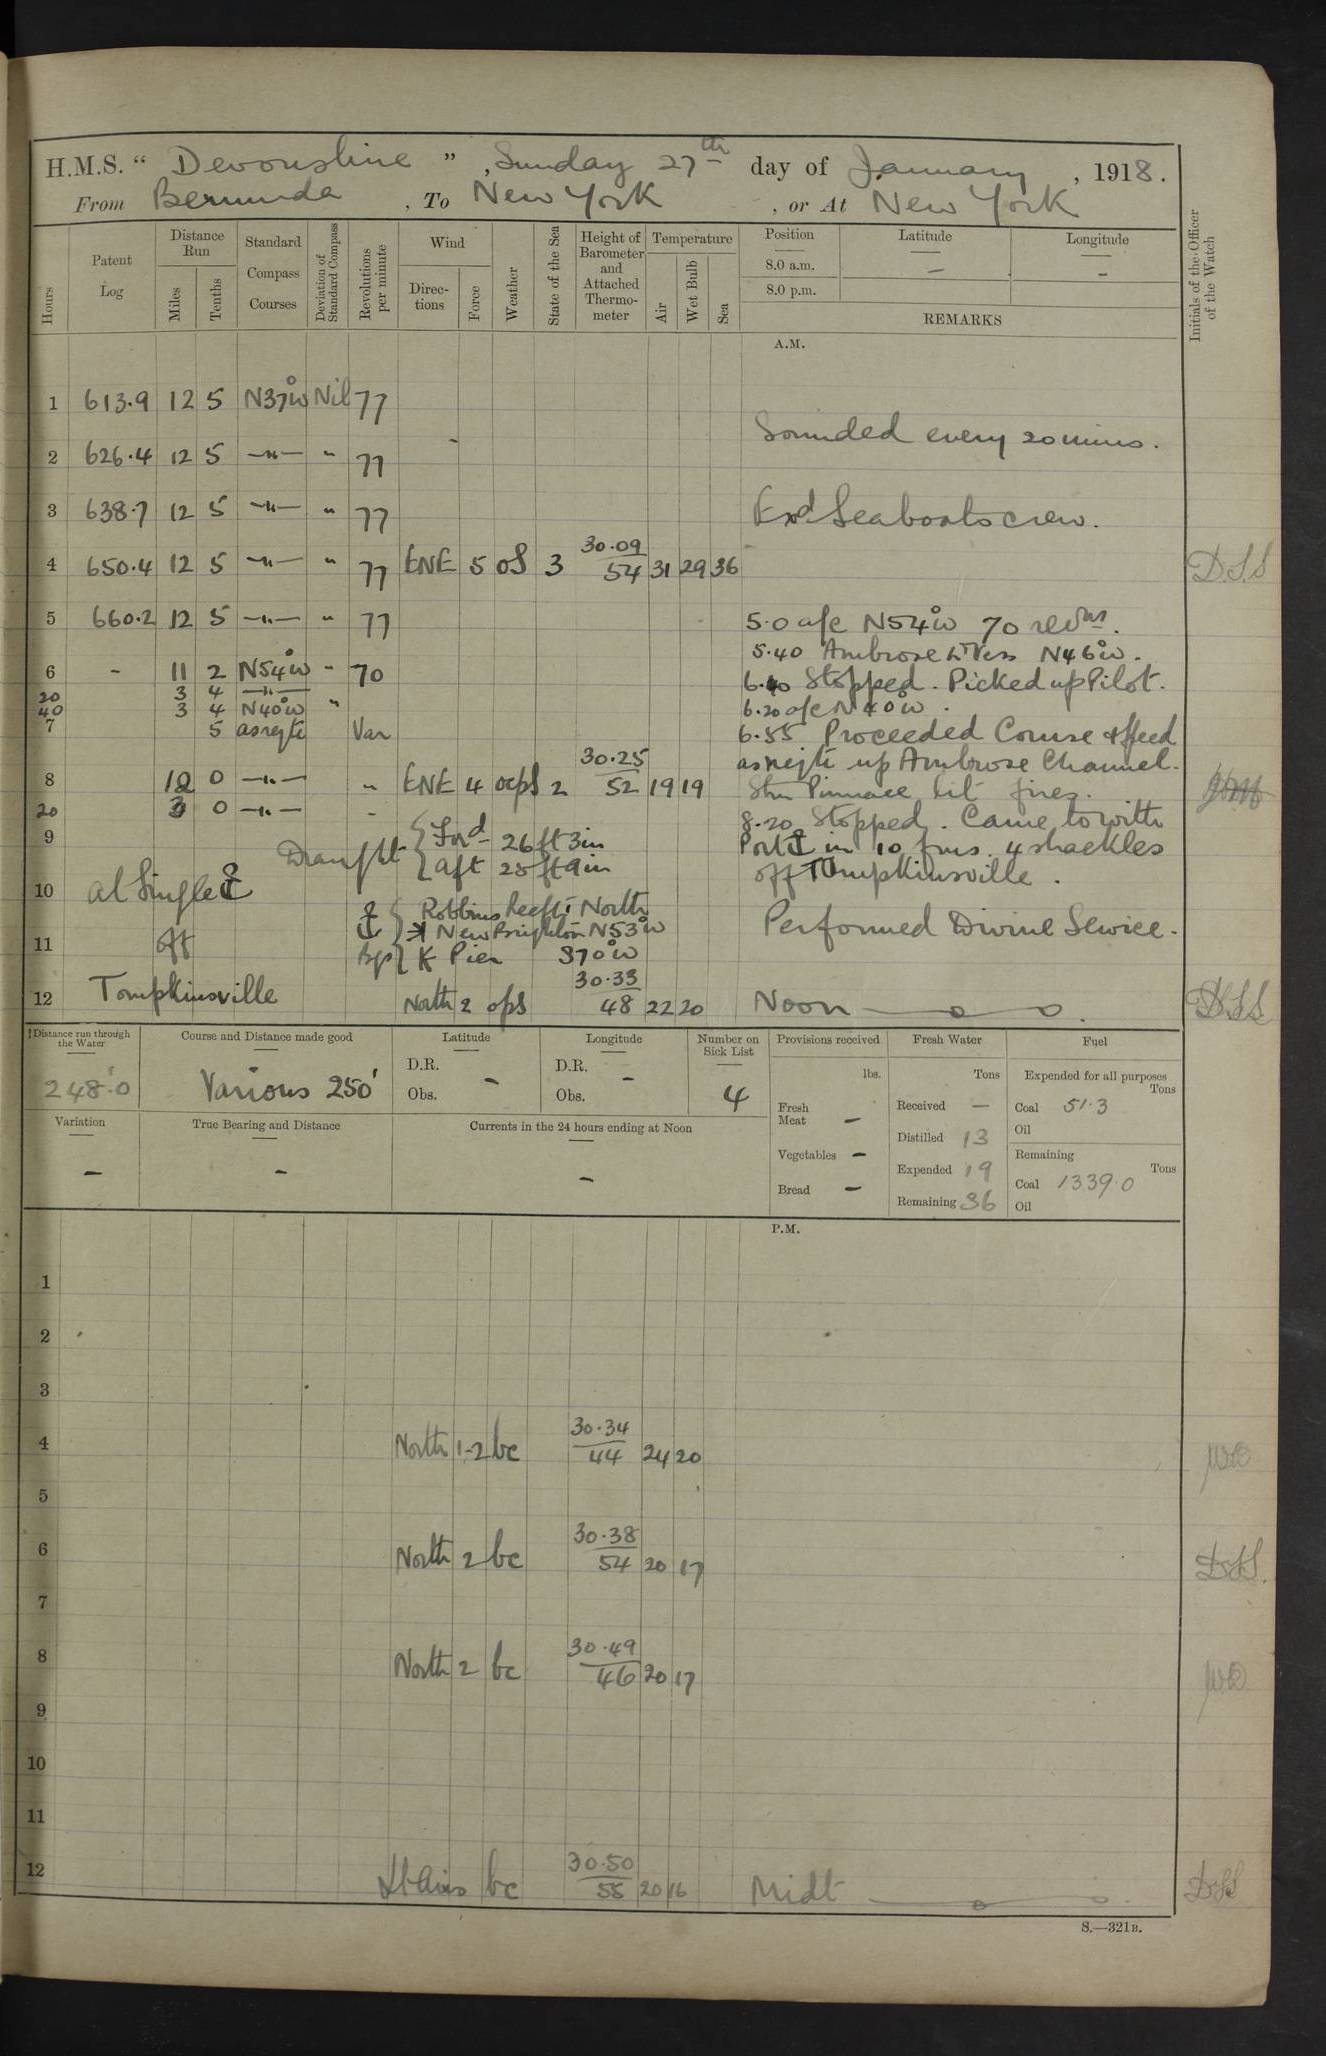 H.M.S. “ Devonshire ” , Sunday 27th day of January , 1918.
From Bermuda , To New York , or At New York
Hours
Patent Log
Distance Run
Miles
Tenths
Standard Compass Courses
Deviation of Standard Compass
Revolutions per minute
Wind
Directions
Force
Weather
State of the Sea
Height of Barometer and Attached Thermometer
Temperature
Air
Wet Bulb
Sea
Position
8.0 a.m.
8.0 p.m.
Latitude
—
Longitude
—
REMARKS
Initials of the Officer of the Watch
A.M.
1 613.9 12 5 N37°W Nil 77
Sounded every 20 mins.
2 626.4 12 5 —"— " 77
3 638.7 12 5 —"— " 77 Exd Seaboats crew.
4 650.4 12 5 —"— " 77 ENE 5 os 3 30.09 54 31 29 36 D.S.S
5 660.2 12 5 —"— " 77 5.0 a/c N54°W 70 revns.
5.40 Ambrose Lt Vess N46°W.
6 - 11 2 N54°W " 70
6.10 Stopped. Picked up Pilot.
20 3 4 —"—
40 3 4 N40°W "
6.20 a/c N40°W.
7 5 as reqte Var 6.55 Proceeded Course & Speed
as reqte up Ambrose Channel.
8 12 0 —"— " ENE 4 ocps 2 30.25 52 19 19 Stm Pinnace lit fires.
20 3 0 —"— "
8.20 Stopped. Came to with
9 Draught { Ford 26 ft 3 in
Port ⚓ in 10 fms. 4 shackles
aft 25 ft 9 in
off Tompkinsville.
10 At Single ⚓
⚓ { Robbins Reef Lt North
Performed Divine Service.
11 off New Brighton N53°W
Bgs { K Pier S70°W
12 Tompkinsville North 2 ops 30.33 48 22 20 Noon D.S.S
Distance run through the Water
248.0
Course and Distance made good
Various 250'
Latitude
D.R.
Obs. —
Longitude
D.R.
Obs. —
Number on Sick List
4
Variation
—
True Bearing and Distance
—
Currents in the 24 hours ending at Noon
—
Provisions received
lbs.
Fresh Meat —
Vegetables —
Bread —
Fresh Water
Tons
Received —
Distilled 13
Expended 19
Remaining 36
Fuel
Expended for all purposes
Tons
Coal 51.3
Oil
Remaining
Tons
Coal 1339.0
Oil
P.M.
1
2
3
4 North 1-2 bc 30.34 44 24 20
5
6 North 2 bc 30.38 54 20 17 D.S.S.
7
8 North 2 bc 30.49 46 20 17
9
10
11
12 Lt Airs bc 30.50 55 20 16 Midt D.S.S
S.—321B.